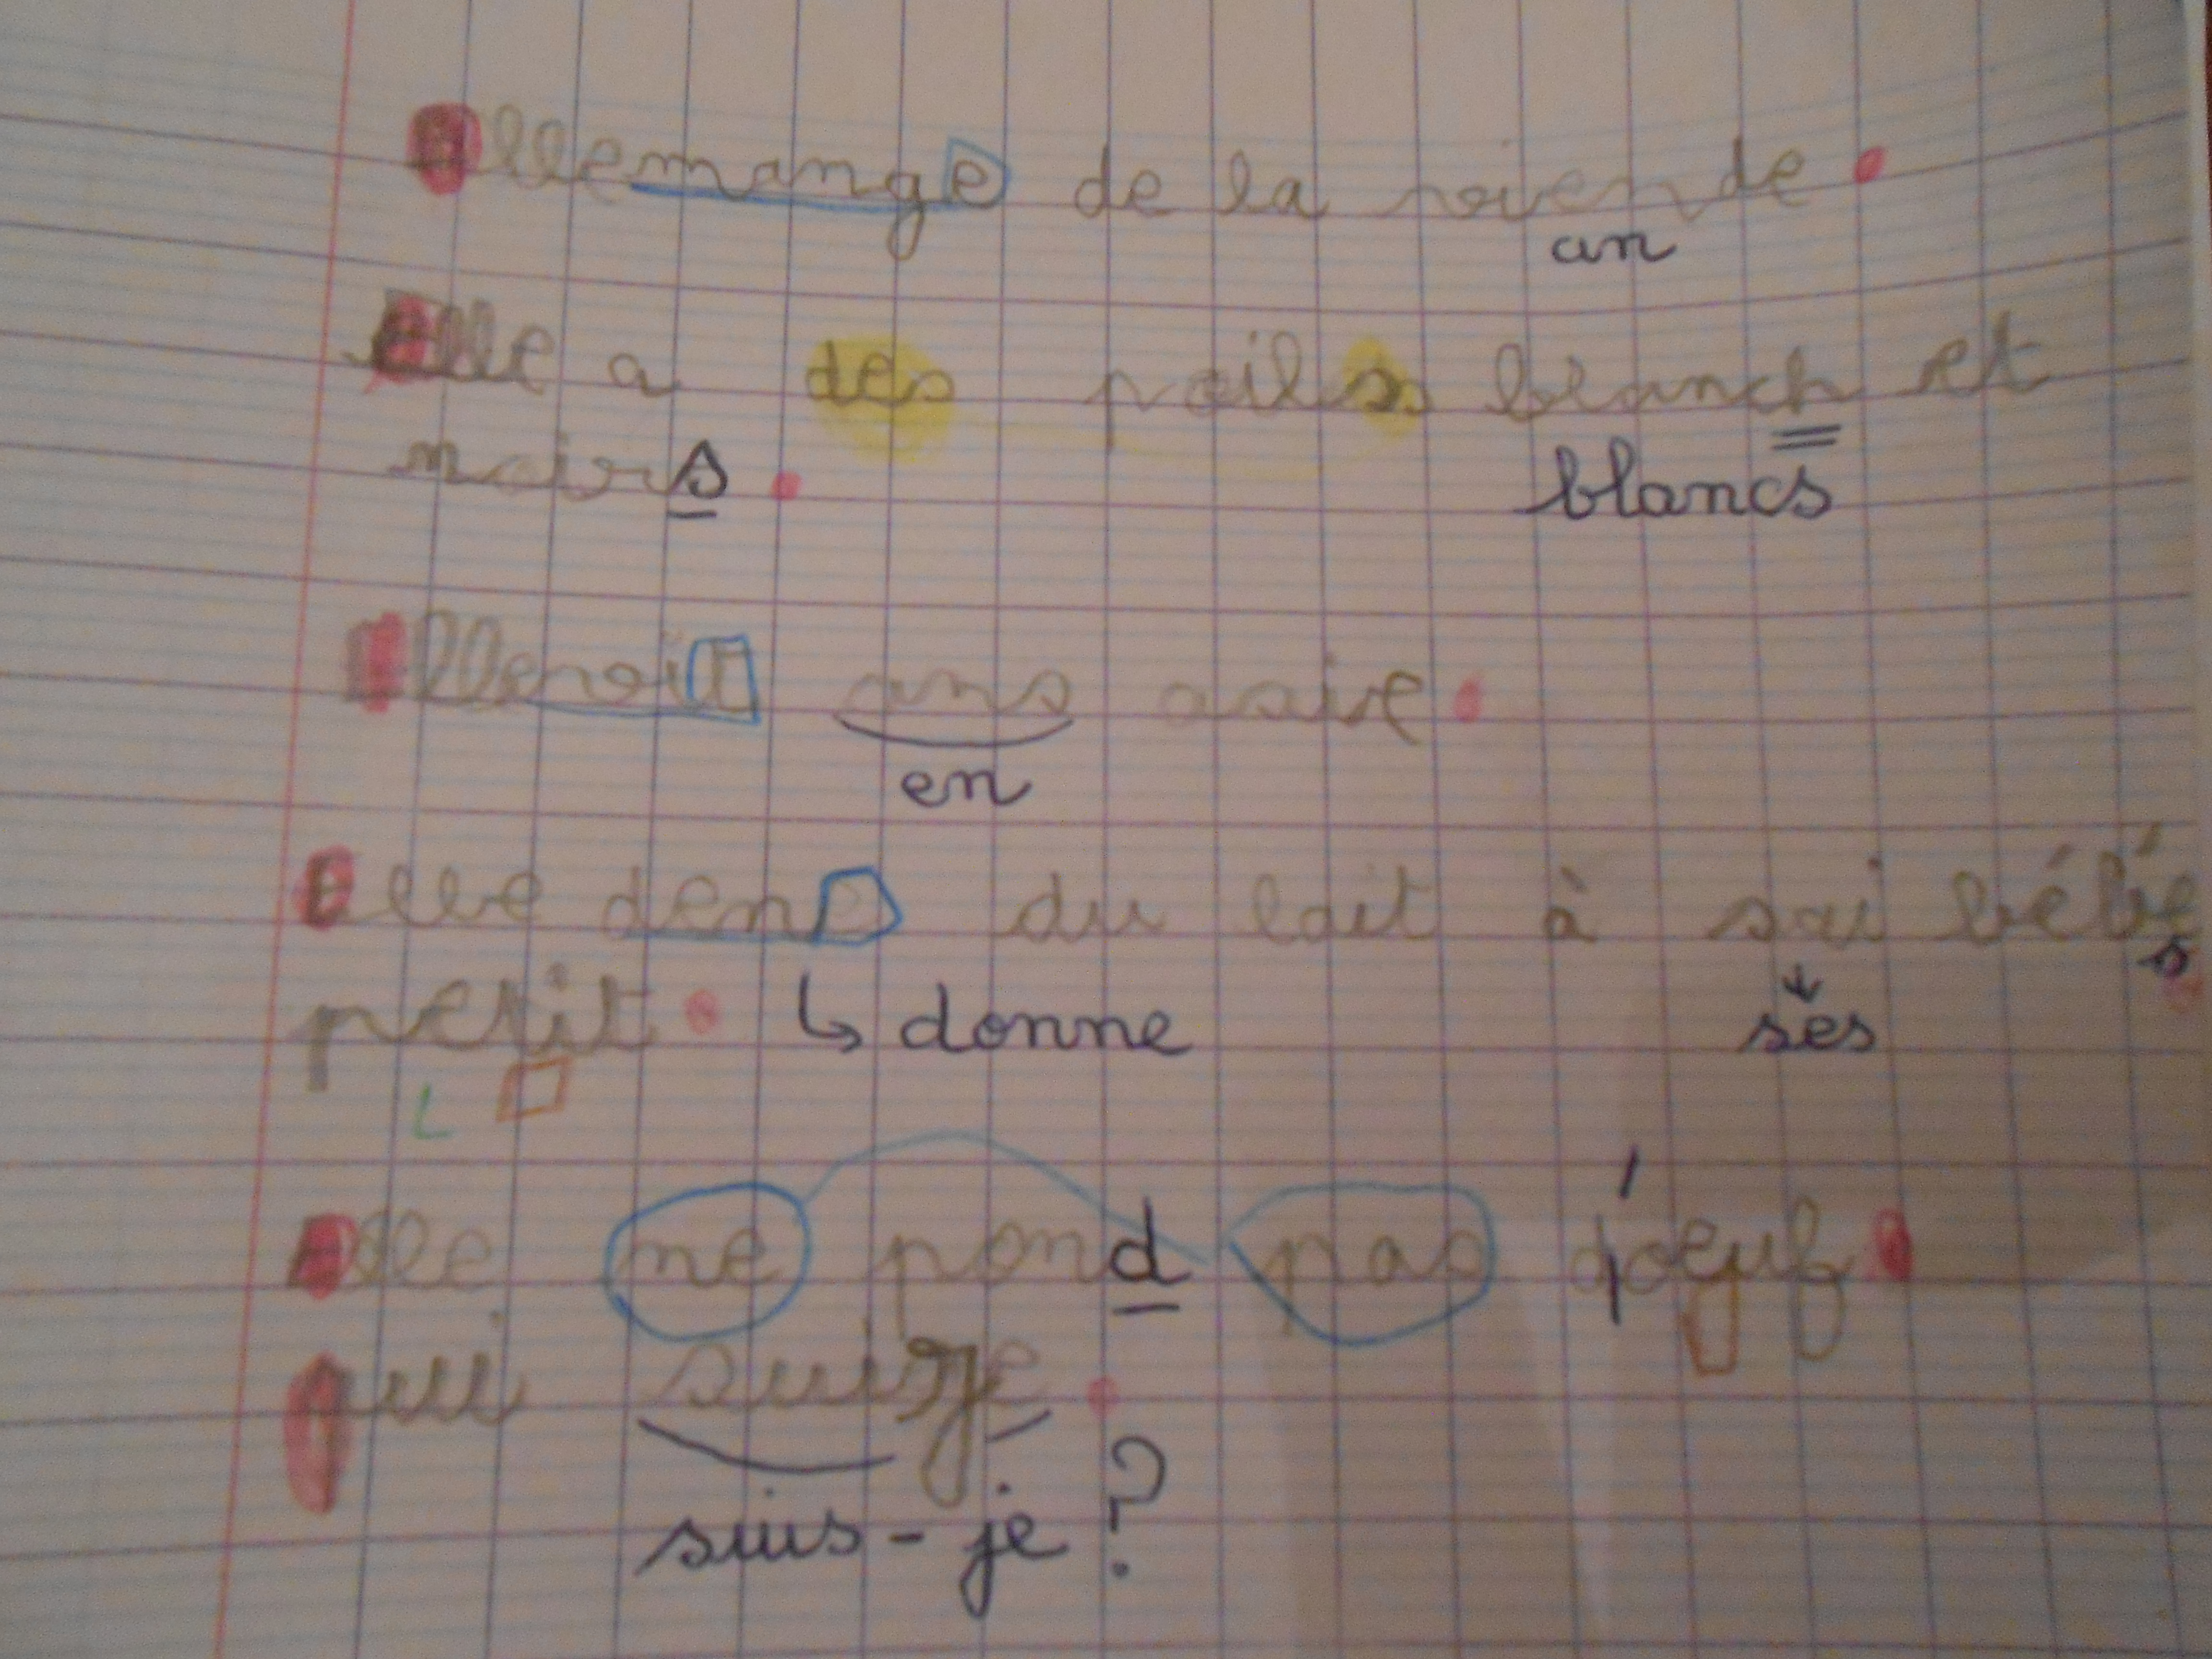 Elle mange de la viende.
an
Elle a des poils blanch et
noirs.
blancs
Elle voit ans
en
Elle dene du lait à sai bébés
petit. ↳ donne ses
Elle ne pond pas d'oeuf.
qui suisje.
suis-je ?